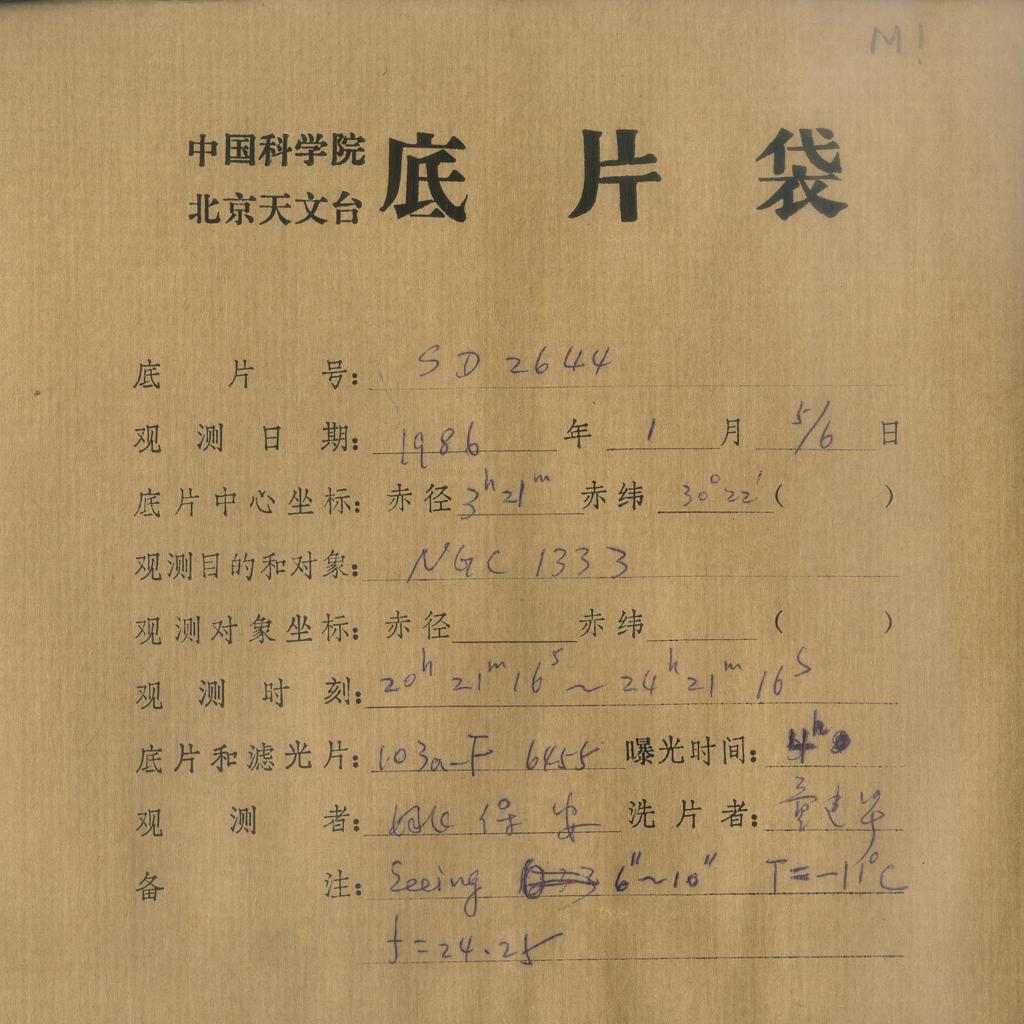 M!
中国科学院
北京天文台 底片袋
底片号: SD 2644
观测日期: 1986 年 1 月 5/6 日
底片中心坐标: 赤径 3h 21m 赤纬 30°22' ( )
观测目的和对象: NGC 1333
观测对象坐标: 赤径 赤纬 ( )
观测时刻: 20h 21m 16s ~ 24h 21m 16s
底片和滤光片: 103a-F 6455 曝光时间: 4h
观测者: 姚保安 洗片者: 童建华
备注: Seeing 6"~10" T=-11°C
f=24.25